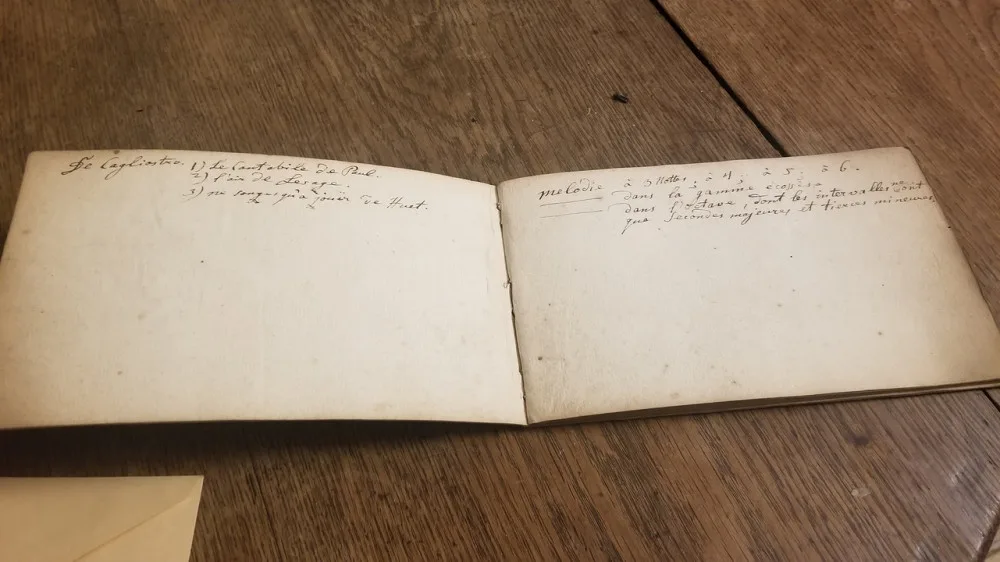 De Cagliostre. 1) Le Cantabile de Paul.
2) l'air de Lesage.
3) ne songer qu'a jouir de Huet.
melodie à 3 Nottes, à 4, à 5, à 6.
dans la gamme écossèse
dans l'octave, dont les intervalles ne sont
que Secondes majeures et tierces mineures